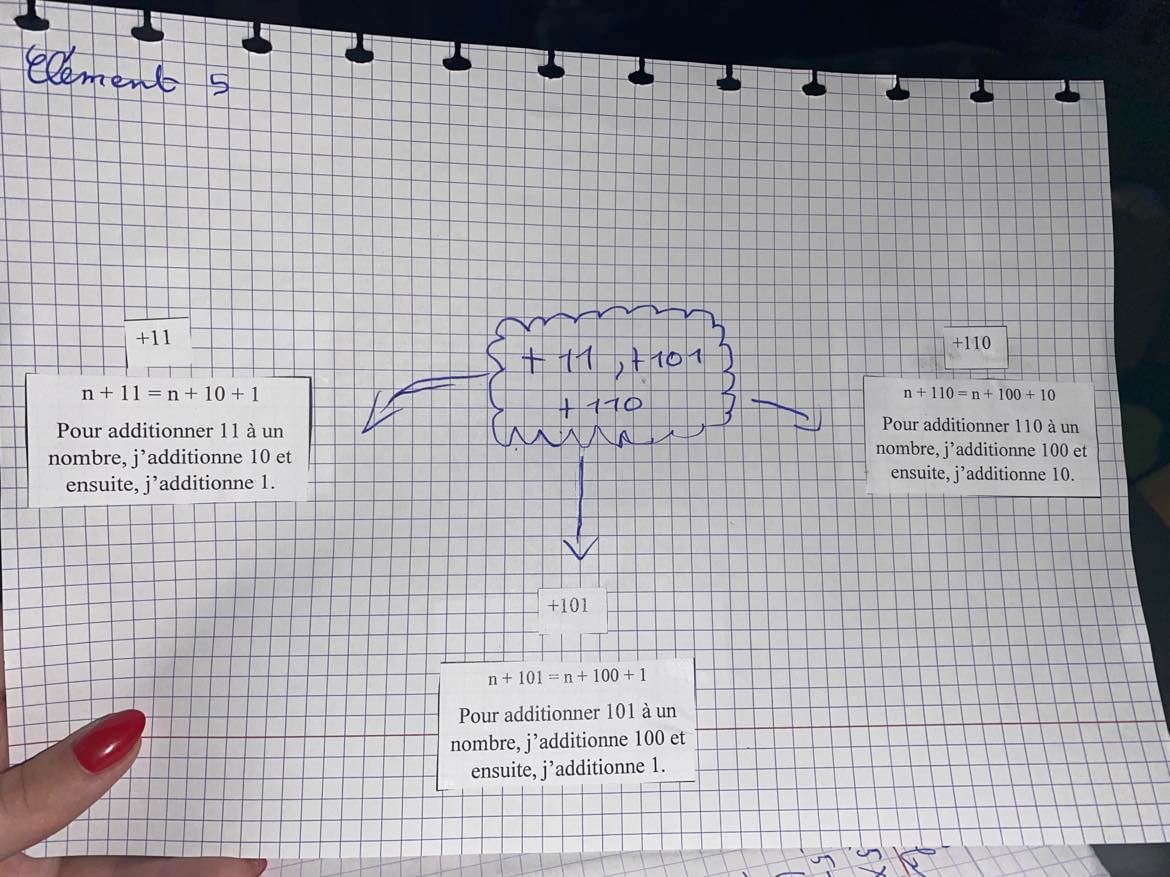 Elément 5
+ 11 , +101
+ 110
+11
n + 11 = n + 10 + 1
Pour additionner 11 à un
nombre, j’additionne 10 et
ensuite, j’additionne 1.
+110
n + 110 = n + 100 + 10
Pour additionner 110 à un
nombre, j’additionne 100 et
ensuite, j’additionne 10.
+101
n + 101 = n + 100 + 1
Pour additionner 101 à un
nombre, j’additionne 100 et
ensuite, j’additionne 1.